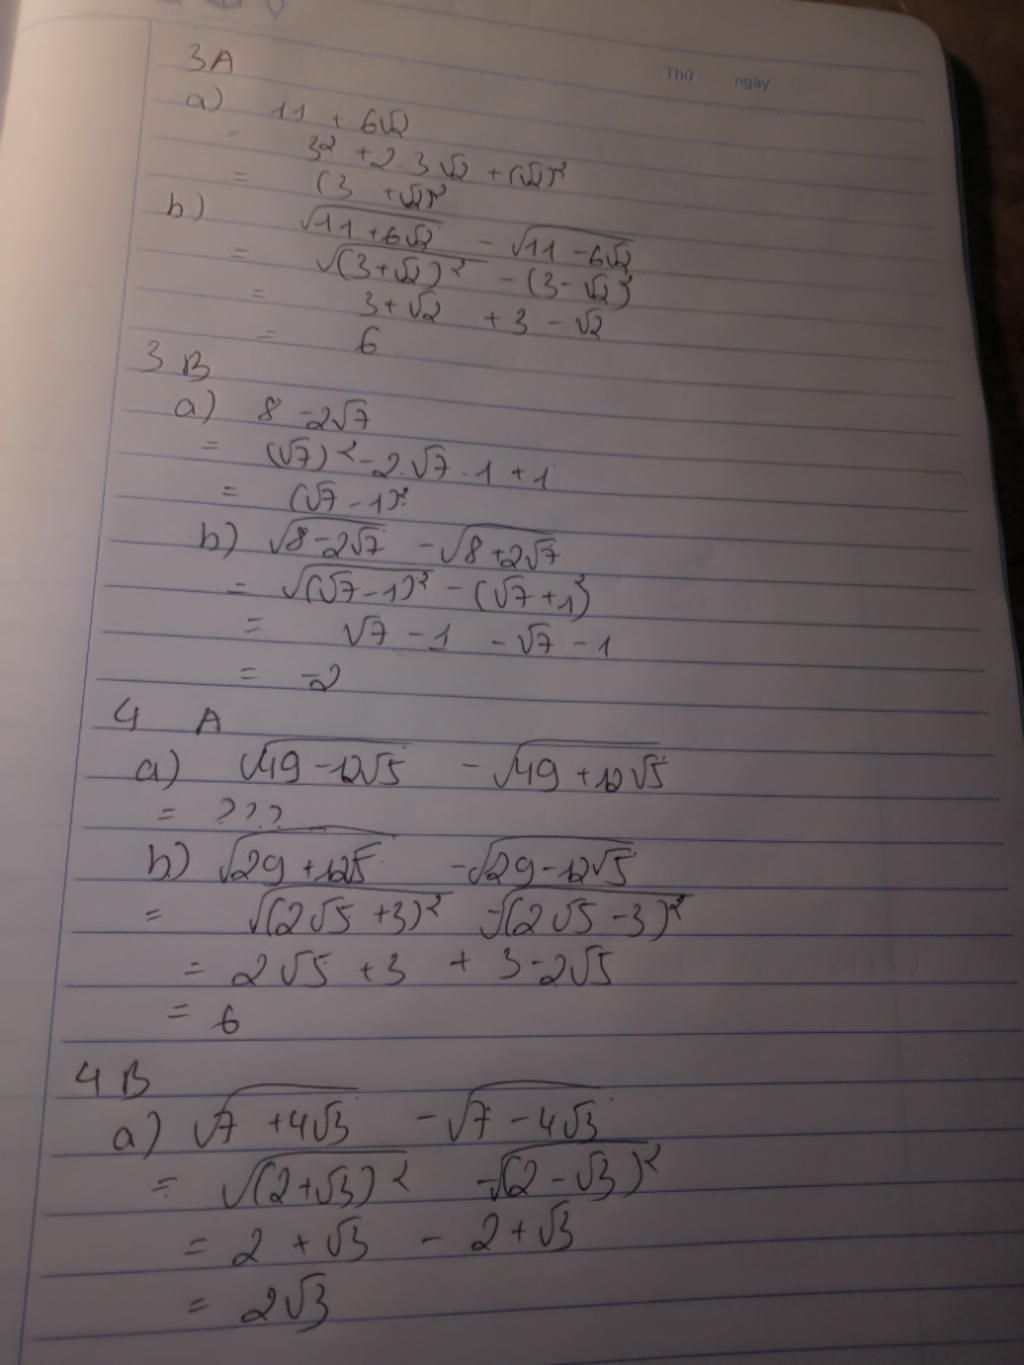 Thứ ngày
3A
a) 11 + 6√2
= 3² + 2.3√2 + (√2)²
= (3 + √2)²
b) √(11 + 6√2) - √(11 - 6√2)
= √(3+√2)² - (3-√2)²
= 3+√2 + 3 - √2
= 6
3 B
a) 8 - 2√7
= (√7)² - 2.√7 . 1 + 1
= (√7 - 1)²
b) √(8 - 2√7) - √(8 + 2√7)
= √(√7 - 1)² - (√7 + 1)²
= √7 - 1 - √7 - 1
= -2
4 A
a) √(49 - 12√5) - √(49 + 12√5)
= ???
b) √(29 + 12√5) - √(29 - 12√5)
= √(2√5 + 3)² - √(2√5 - 3)²
= 2√5 + 3 + 3 - 2√5
= 6
4 B
a) √(7 + 4√3) - √(7 - 4√3)
= √(2 + √3)² - √(2 - √3)²
= 2 + √3 - 2 + √3
= 2√3